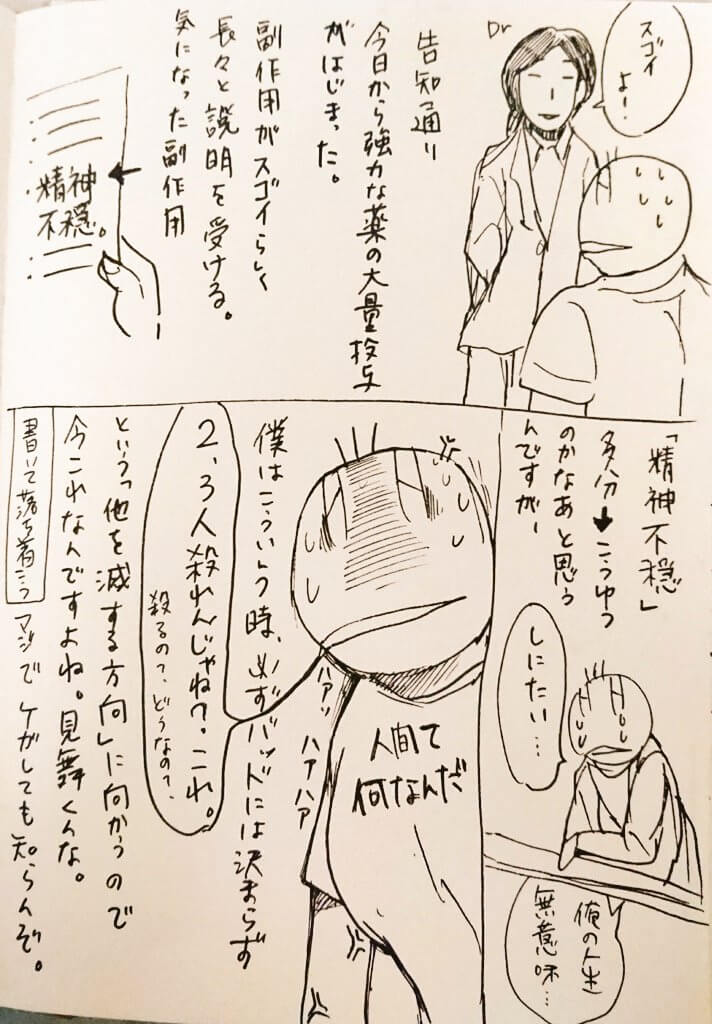 スゴイ
よー！
Dr
告知通り
今日から強力な薬の大量投与
がはじまった。
副作用がスゴイらしく
長々と説明を受ける。
気になった副作用
精神
不穏。
「精神不穏」
多分→こうゆう
のかなあと思う
んですがー
しにたい…
俺の人生
無意味…
人間て
何なんだ
ハアッ
ハアハア
僕はこういう時、必ずバッドには決まらず
2、3人殺れんじゃね？、これ。
殺るの？、どうなの？、
という「他を滅する方向」に向かうので
今これなんですよね。見舞くんな。
マジでケガしても知らんぞ。
書いて落ち着こう